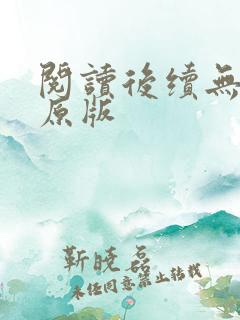 閱讀後續無
原版
靳曉磊
未经同意禁止转载